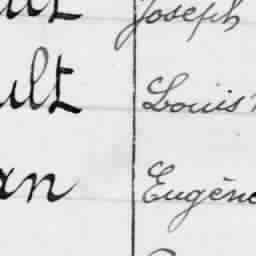 Joseph
ult Louis
an Eugène